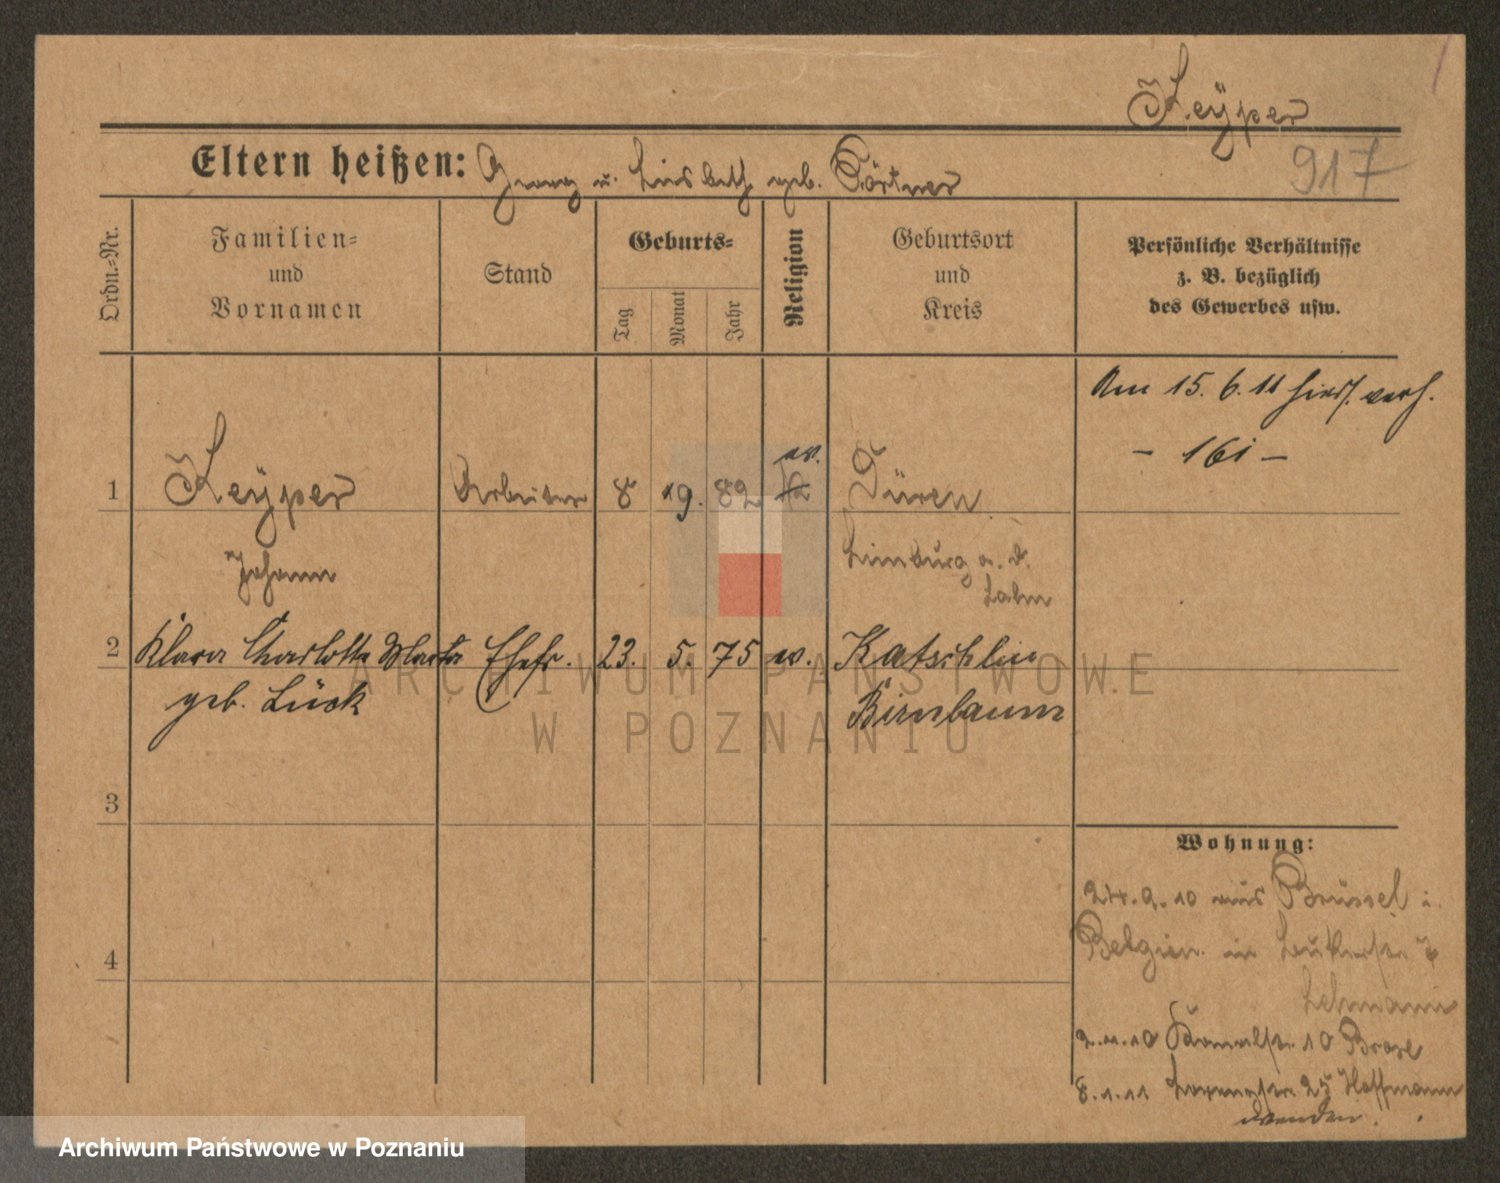 Keÿper
917
Eltern heißen: Georg u. Lisbeth geb. Görtner
Ordn.=Nr.
Familien=
und
Vornamen
Stand
Geburts=
Tag
Monat
Jahr
Religion
Geburtsort
und
Kreis
Persönliche Verhältnisse
z. B. bezüglich
des Gewerbes usw.
Am 15. 6. 11 hiers. verh.
- 161 -
1 Keÿper Arbeiter 8 19. 82 ev. Düren
Johann
Limburg a. d.
Lahn
2 Klara Charlotte Marta Ehefr. 23. 5. 75 ev. Katschlin
geb. Lück
Birnbaum
3
4
Wohnung:
24.9.10 aus Brüssel i.
Belgien in
Lehmann
2.11.10 Kanalstr. 10
8.1.11 25 Hoffmann
wenden.
ARCHIWUM PAŃSTWOWE
W POZNANIU
Archiwum Państwowe w Poznaniu